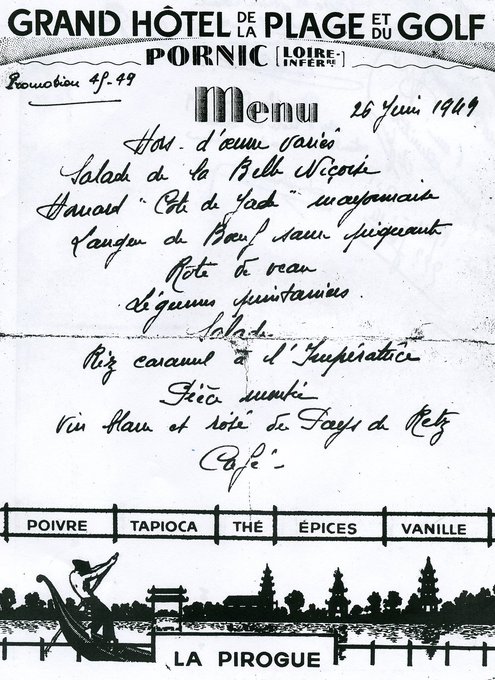 GRAND HÔTEL DE LA PLAGE ET DU GOLF
PORNIC [LOIRE-INFÉRRE]
Promotion 45-49
Menu 26 Juin 1949
Hors-d'œuvre variés
Salade de la Belle Niçoise
Homard "Côte de Jade" mayonnaise
Langue de Boeuf sauce piquante
Rôti de veau
Légumes printaniers
Salade
Riz caramel à l'Impératrice
Pièce montée
Vin blanc et rosé du Pays de Retz
Café-
POIVRE TAPIOCA THÉ ÉPICES VANILLE
LA PIROGUE